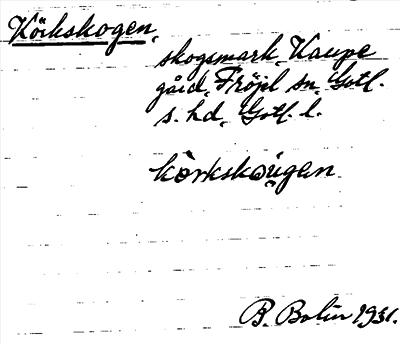 Körkskogen,
skogsmark, Kaupe
gård, Fröjel sn, Gotl.
s. hd, Gotl. l.
kòrkskóugen
B. Bolin 1931.